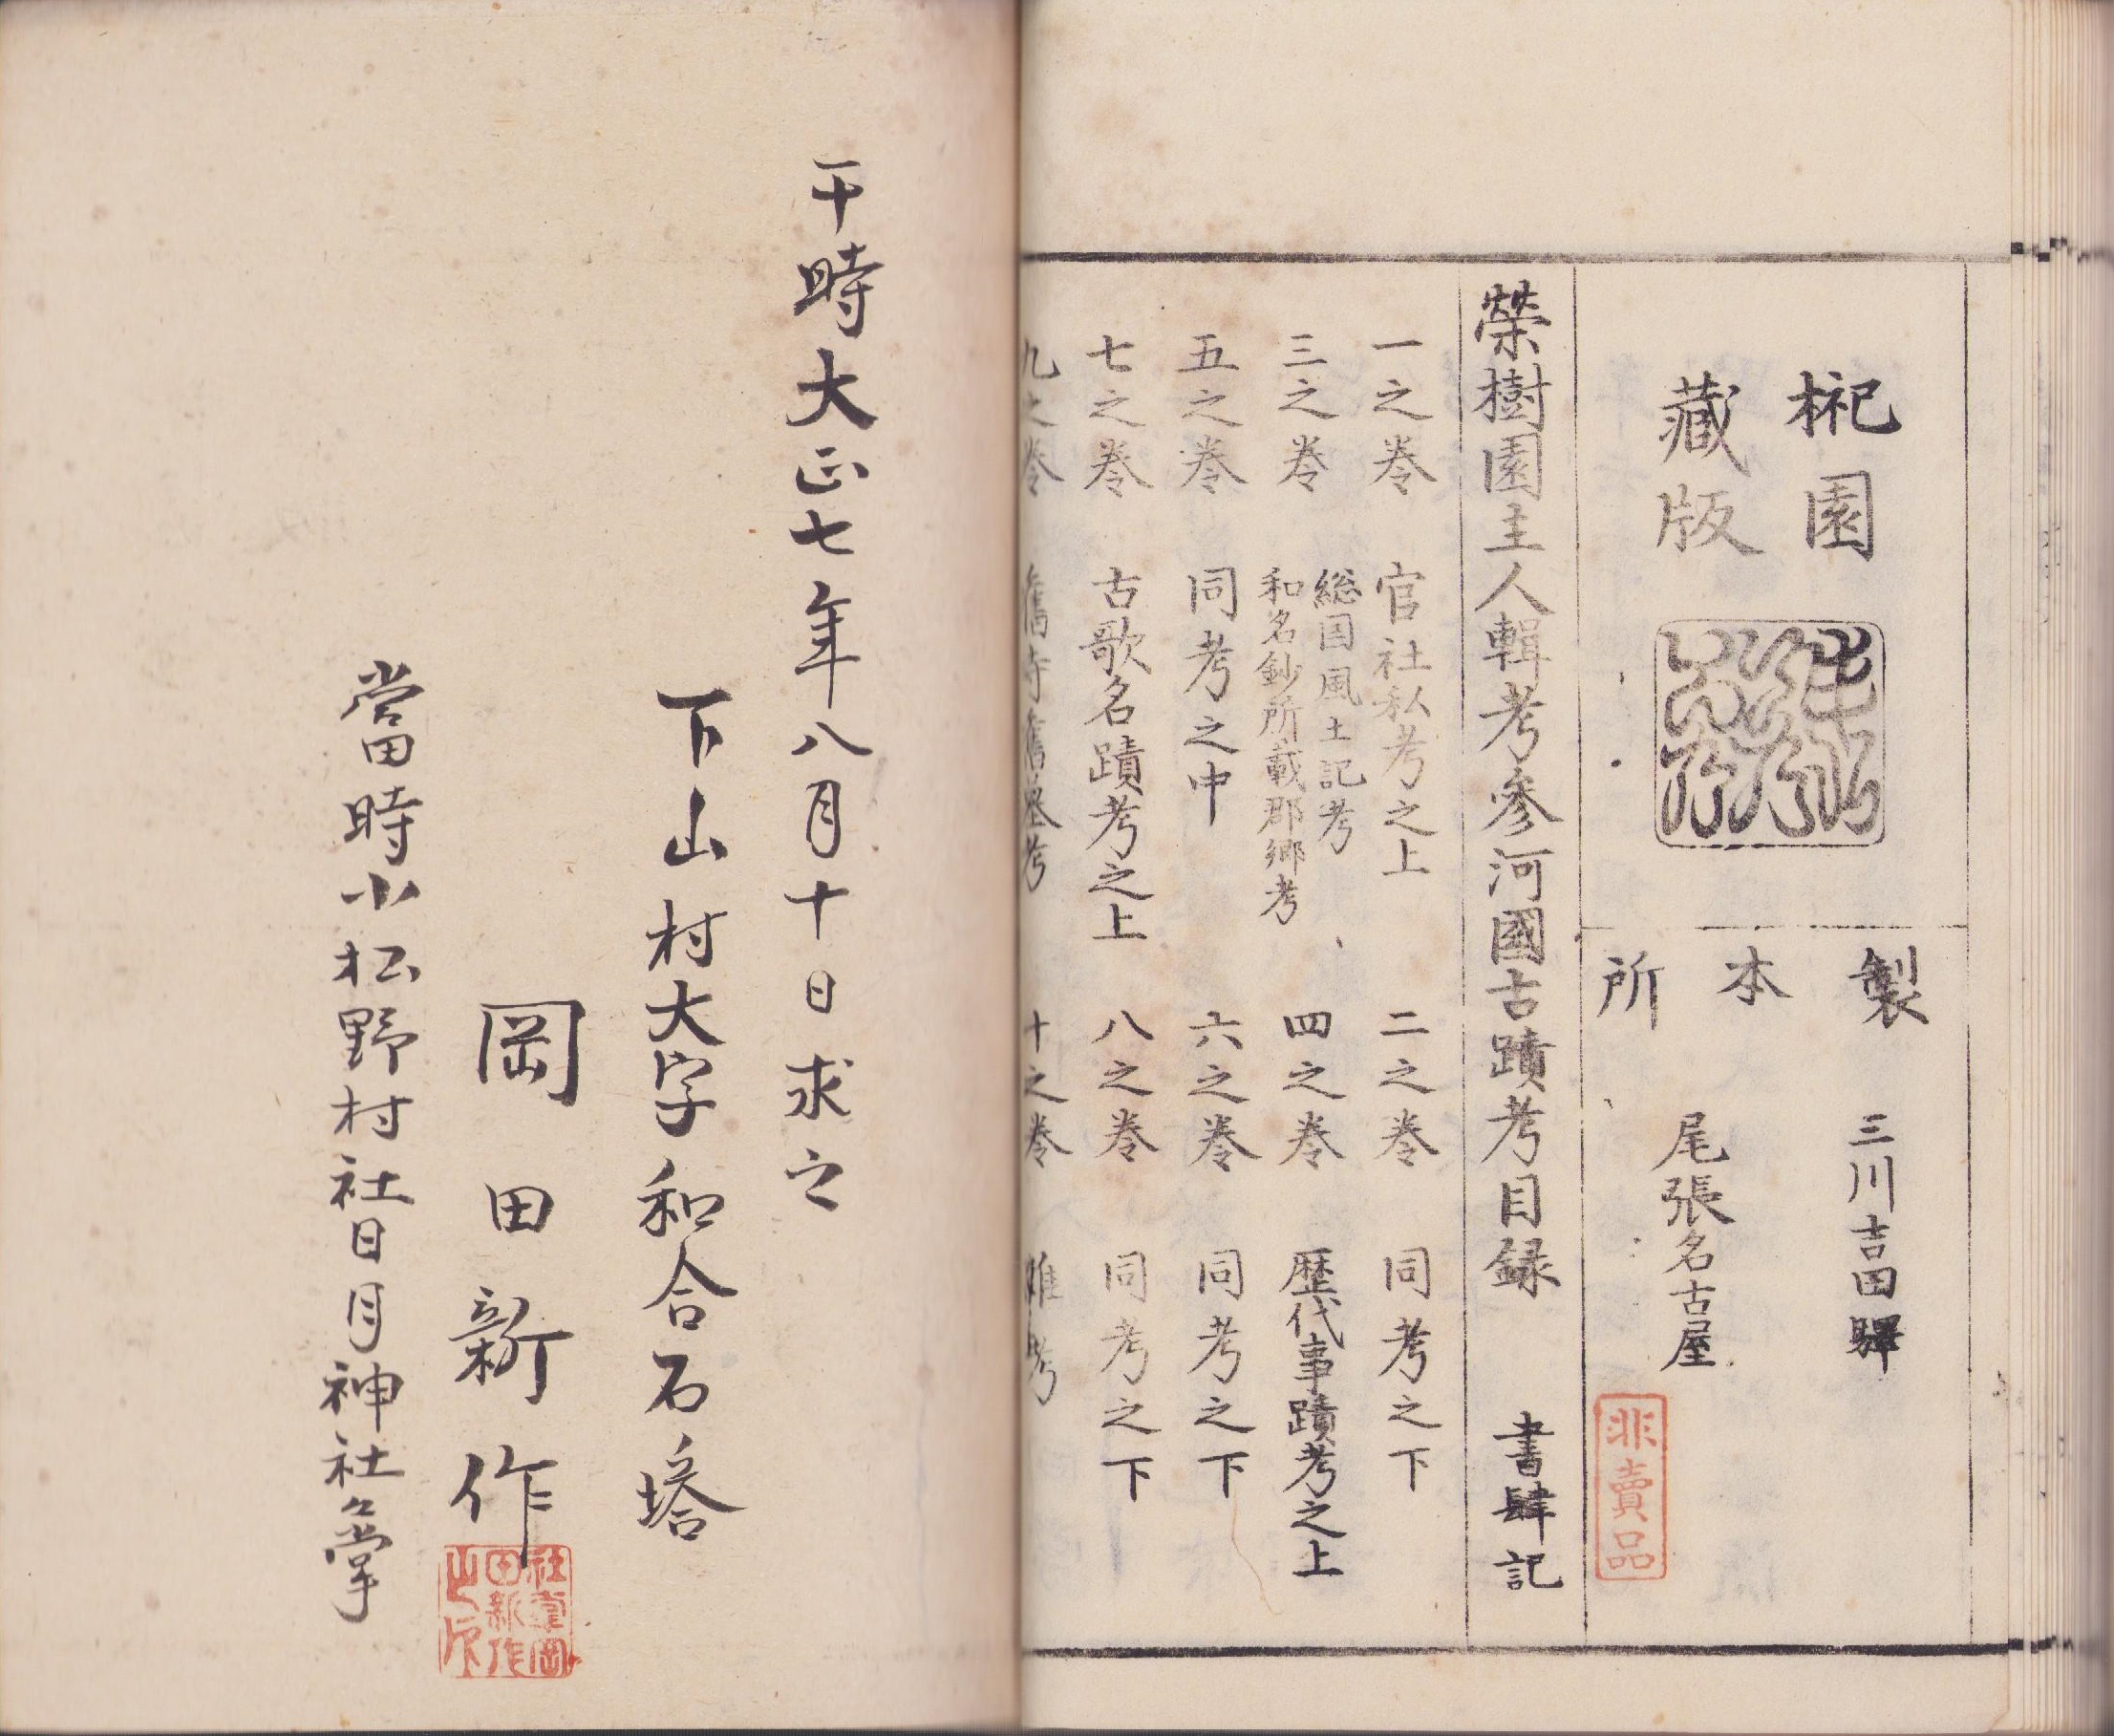 園
藏版
製本所
三川吉田驛
尾張名古屋
非賣品
榮樹園主人輯考參河國古蹟考目録 書肆記
一之巻 官社私考之上 二之巻 同考之下
三之巻 総国風土記考 和名鈔所載郡郷考 四之巻 歴代事蹟考之上
五之巻 同考之中 六之巻 同考之下
七之巻 古歌名蹟考之上 八之巻 同考之下
九之巻 舊寺舊墓考 十之巻 雑考
干時大正七年八月十日求之
下山村大字和合石塔
岡田新作
社掌岡田新作之印
當時小松野村社日月神社々掌